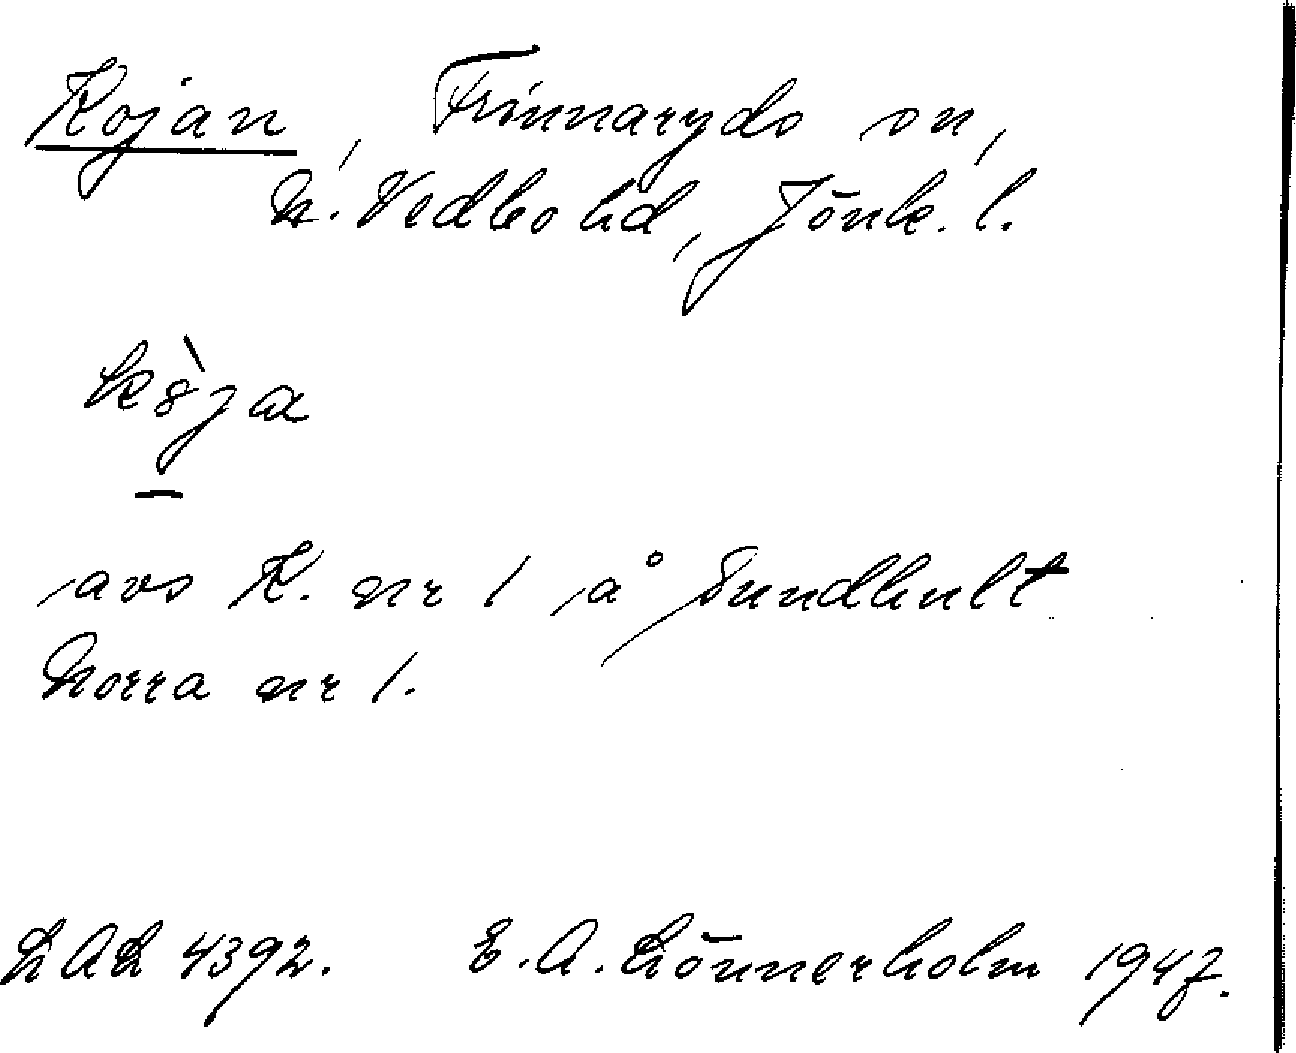 Kojan, Frinnaryds sn,
N. Vedbo hd, Jönk. l.
kòja
avs K. nr 1 å Sundhult
Norra nr 1.
LAL 4392. E. A. Lönnerholm 1947.